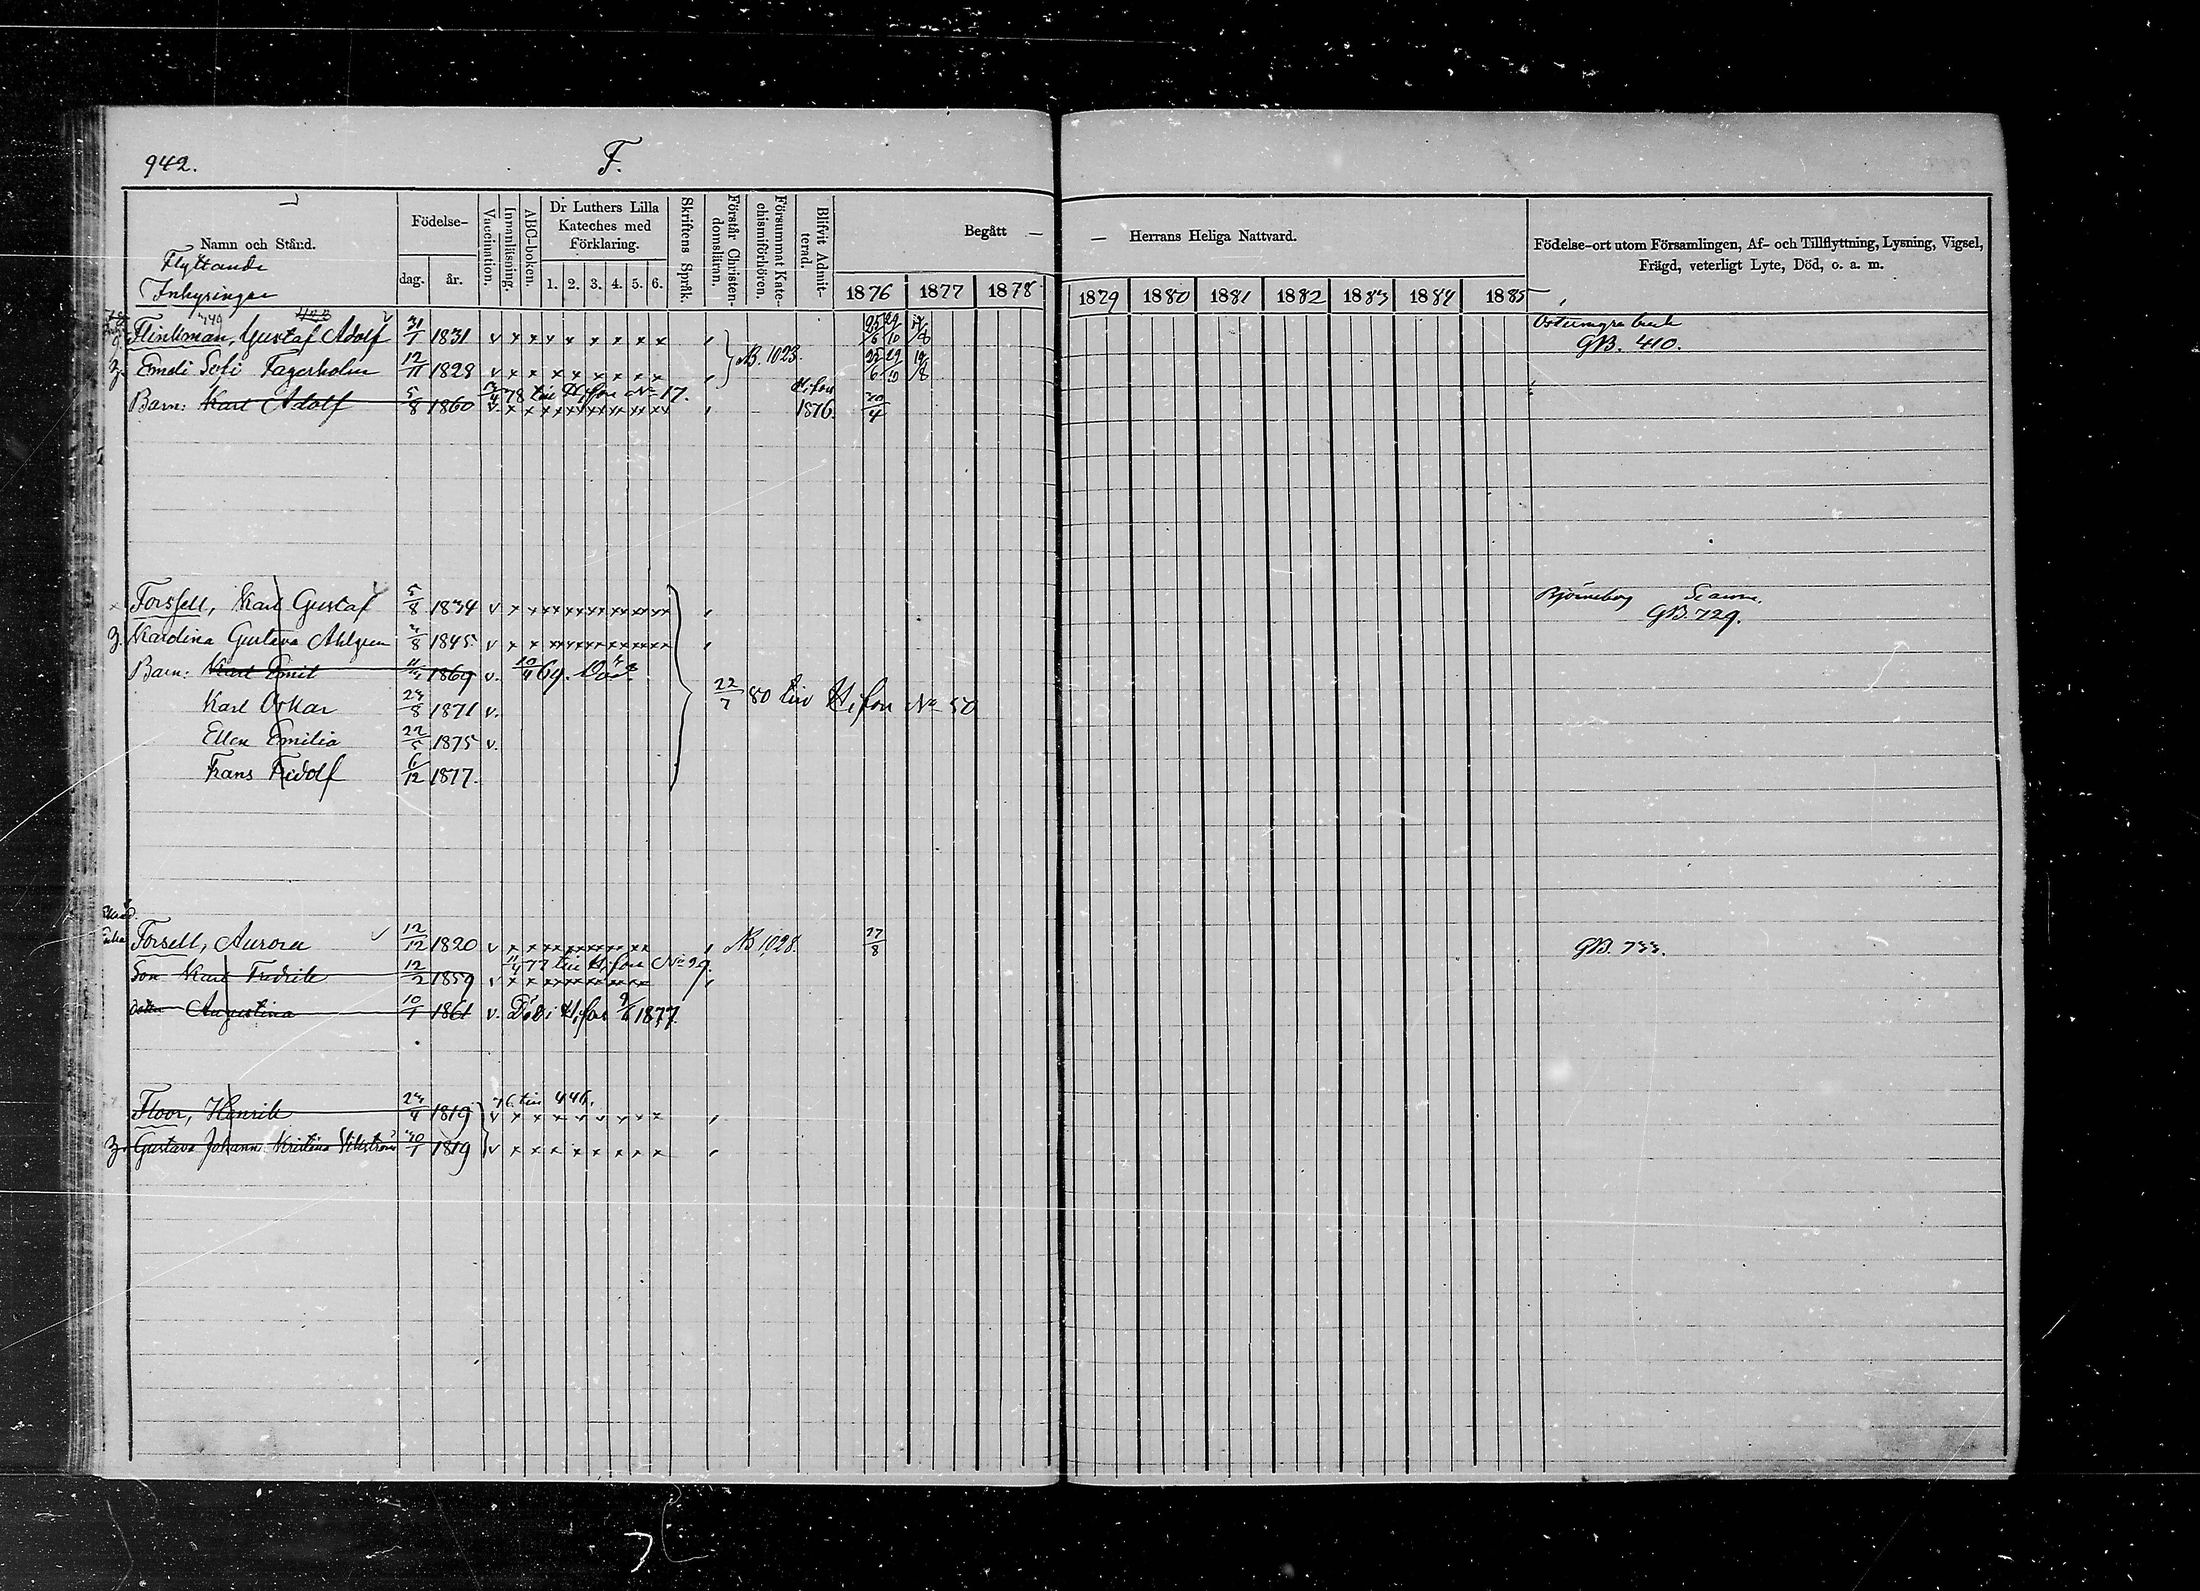 942.
F.
Namn och Stånd.
Flyttande
Inhysingar
Födelse-
dag.
år.
Vaccination.
Innanläsning.
ABC-boken.
Dr Luthers Lilla Kateches med Förklaring.
1. 2. 3. 4. 5. 6.
Skriftens Språk.
Förstår Christendomsläran.
Försummat Katechismiförhören.
Blifvit Admitterad.
Begått —
1876 1877 1878
— Herrans Heliga Nattvard.
1879 1880 1881 1882 1883 1884 1885
Födelse-ort utom Församlingen, Af- och Tillflyttning, Lysning, Vigsel,
Frägd, veterligt Lyte, Död, o. a. m.
Flinkman, Gustaf Adolf 31/1 1831 v x x x x x x x x 25/6 29/10 19/8
GB. 410.
h. Emeli Sofi Fagerholm 12/11 1828 v x x x x x x x x NB. 1023. 25/6 29/10 19/8
78 till H:fors No 17. H:fors
Barn: Karl Adolf 5/8 1860 v. 1876. 30/4
Forssell, Karl Gustaf 5/8 1834 v Björneborg
GB. 729.
h. Karolina Gustava Ahlgren 1845 v
Barn: Karl Emil 1869 v. 69. Död
Karl Oskar 23/8 1871 v. 22/7 80 till H:fors No 50
Ellen Emilia 22/5 1875 v.
Frans Fridolf 6/12 1877.
Enka Forsell, Aurora 12/12 1820 v NB 1028. 27/8 GB. 733.
11/4 77 till H:fors No 29.
Son Karl Fredrik 12/2 1859 v
dotter Augustina 10/1 1861 v. Död i H:fors 1877.
76 till 446.
Floor, Henrik 23/4 1819 v x x x
h. Gustava Johanna Kristina Vikström 30/1 1819 v x x x x x x x x